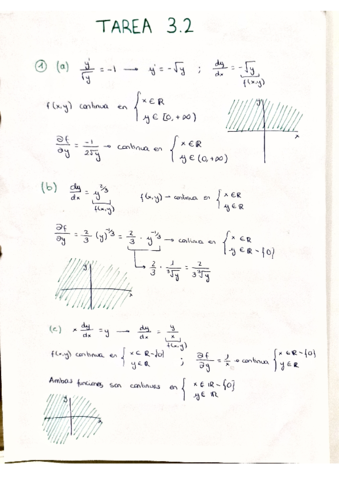 TAREA 3.2
① (a) y'/√y = -1 → y' = -√y ; dy/dx = -√y
f(x,y)
f(x,y) continua en { x ∈ R
y ∈ [0, +∞)
y
x
∂f/∂y = -1/2√y → continua en { x ∈ R
y ∈ (0, +∞)
(b) dy/dx = y^2/3
f(x,y)
f(x,y) → continua en { x ∈ R
y ∈ R
∂f/∂y = 2/3 (y)^-1/3 = 2/3 · y^-1/3 → continua en { x ∈ R
y ∈ R - {0}
2/3 · 1/∛y = 2/3∛y
y
x
(c) x dy/dx = y → dy/dx = y/x
f(x,y)
f(x,y) continua en { x ∈ R - {0}
y ∈ R
; ∂f/∂y = 1/x → continua { x ∈ R - {0}
y ∈ R
Ambas funciones son continuas en { x ∈ R - {0}
y ∈ R
y
x